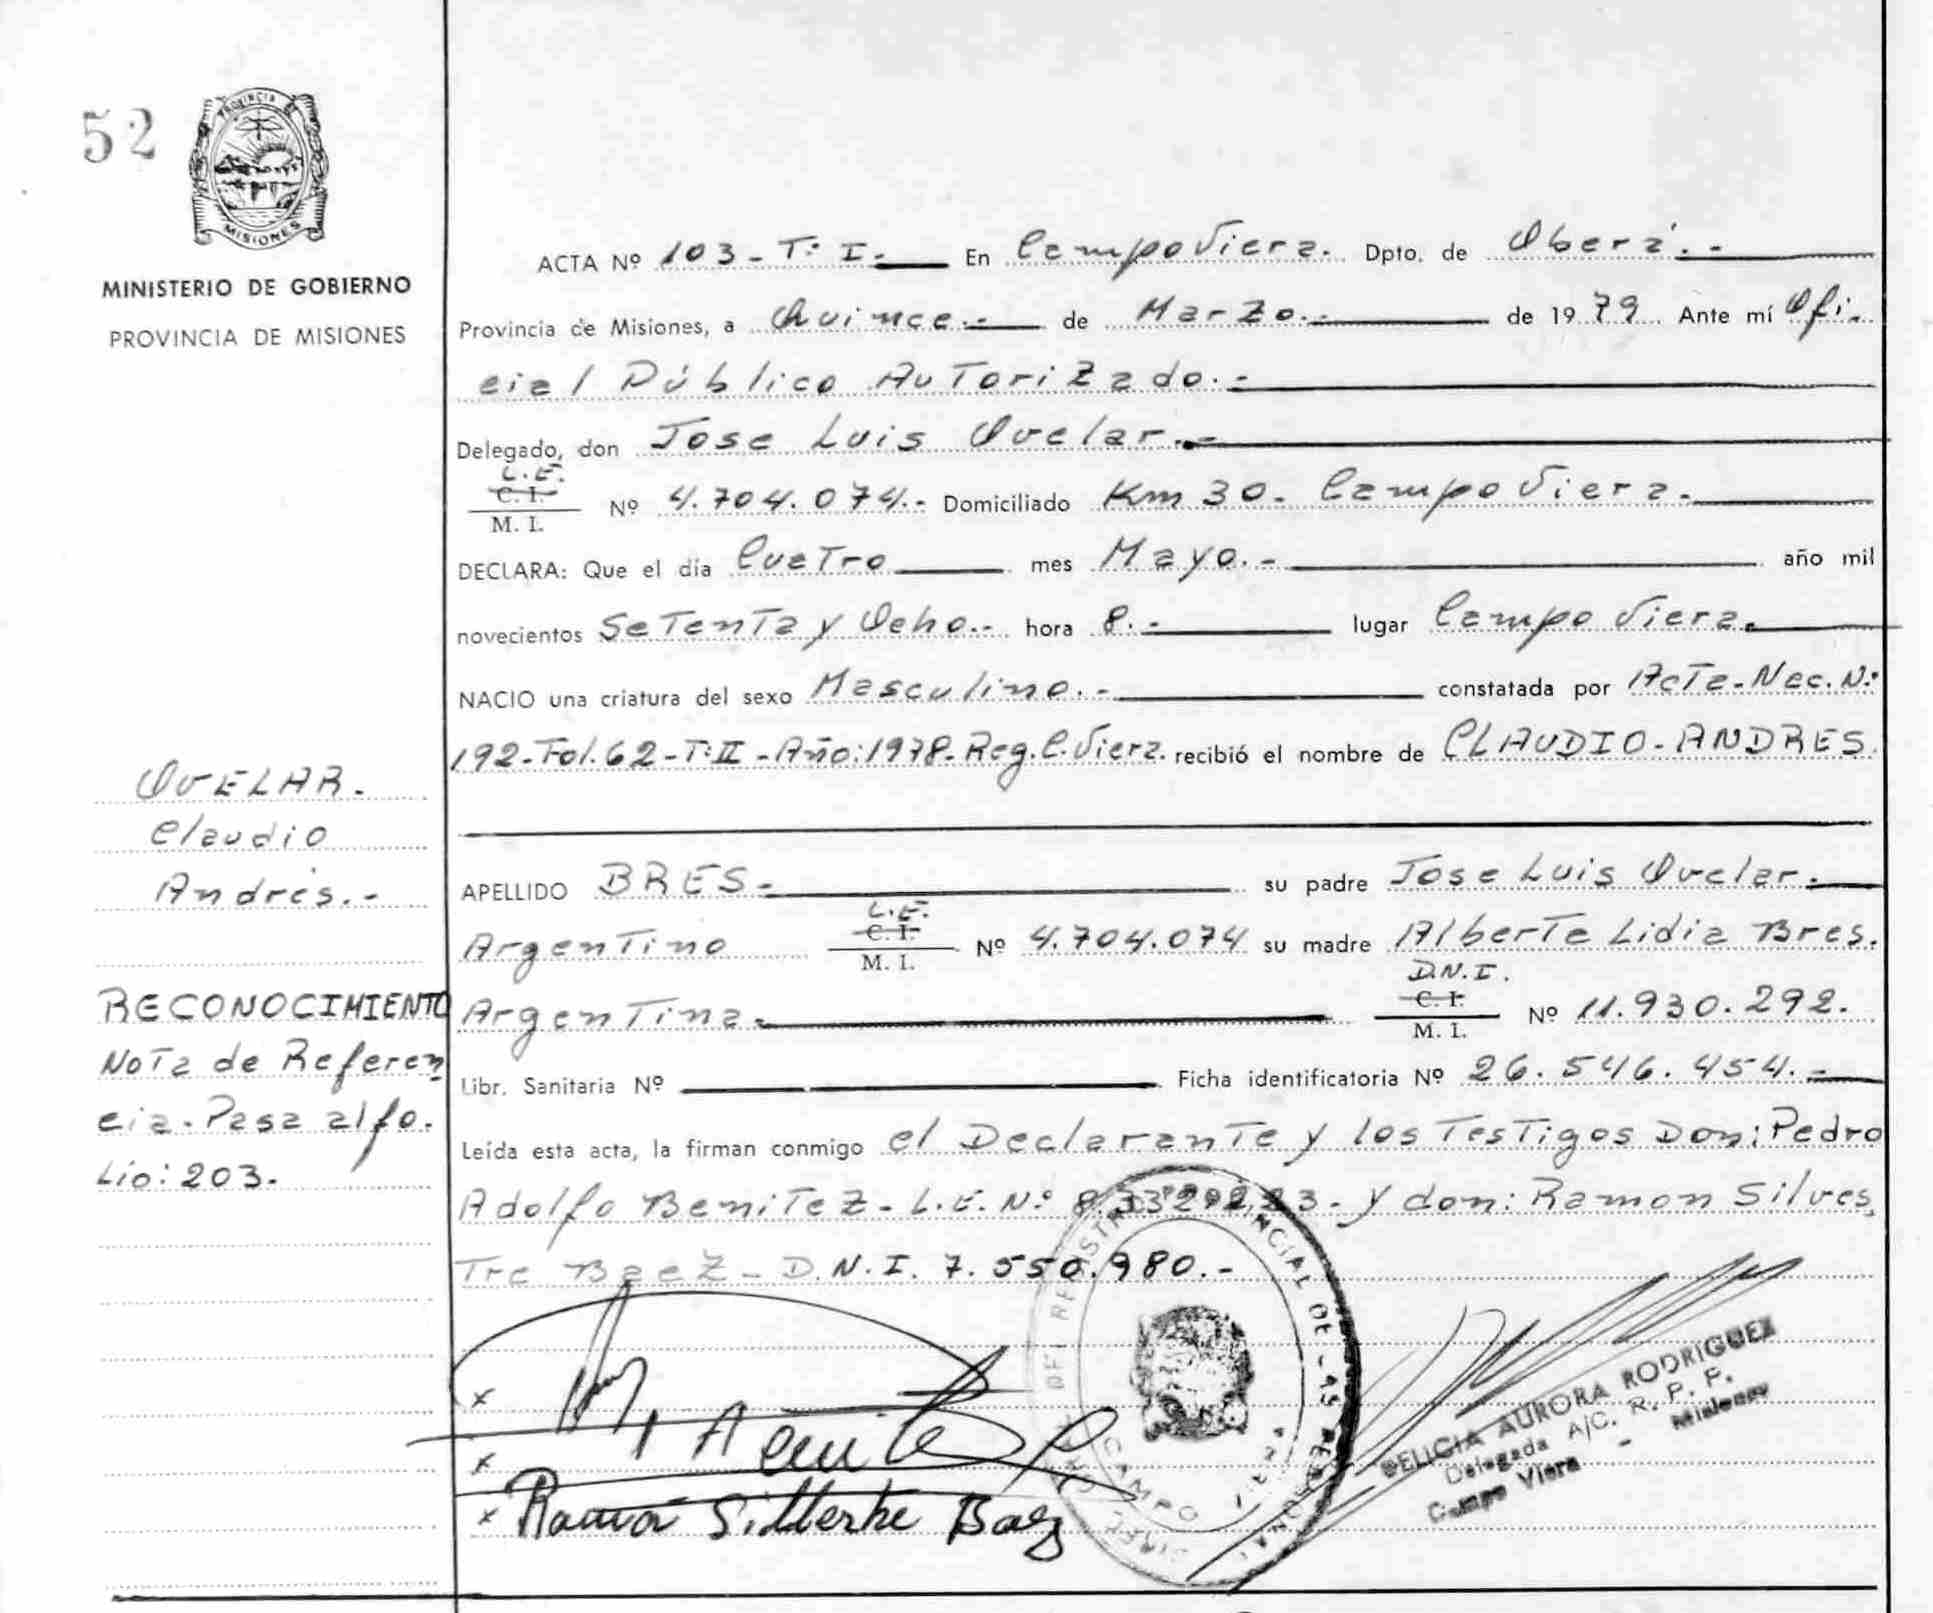 52
PROVINCIA DE
MISIONES
MINISTERIO DE GOBIERNO
PROVINCIA DE MISIONES
OVELAR.
Claudio
Andrés.-
RECONOCIMIENTO
Nota de Referen
cia. Pasa al fo.
lio: 203.
ACTA Nº 103-T: I.- En Campo Viera. Dpto. de Oberá.-
Provincia de Misiones, a Quince.- de Marzo.- de 1979 Ante mí Ofi.
cial Público Autorizado.-
Delegado, don Jose Luis Ovelar.-
L.E.
C. I.
M. I. Nº 4.704.074.- Domiciliado Km 30. Campo Viera.
DECLARA: Que el día Cuatro mes Mayo.- año mil
novecientos Setenta y Ocho.- hora 8.- lugar Campo Viera.
NACIO una criatura del sexo Masculino.- constatada por Acta-Nac. N:
192-Fol. 62-T:II-Año: 1978-Reg. C. Viera. recibió el nombre de CLAUDIO-ANDRES.
APELLIDO BRES.- su padre Jose Luis Ovelar.
Argentino L.E. C. I. M. I. Nº 4.704.074 su madre Alberte Lidia Bres.
Argentina. D.N.I. C. I. M. I. Nº 11.930.292.
Libr. Sanitaria Nº Ficha identificatoria Nº 26.546.454.-
Leída esta acta, la firman conmigo el Declarante y los Testigos Don: Pedro
Adolfo Benitez - L.E. N: y don: Ramon Silves,
Tre Baez - D.N.I. 7.550.980.-
x
x
x Baez
CAMPO VIERA
DELICIA AURORA RODRIGUEZ
Delegada A/C. R. P. P.
Campo Viera - Misiones